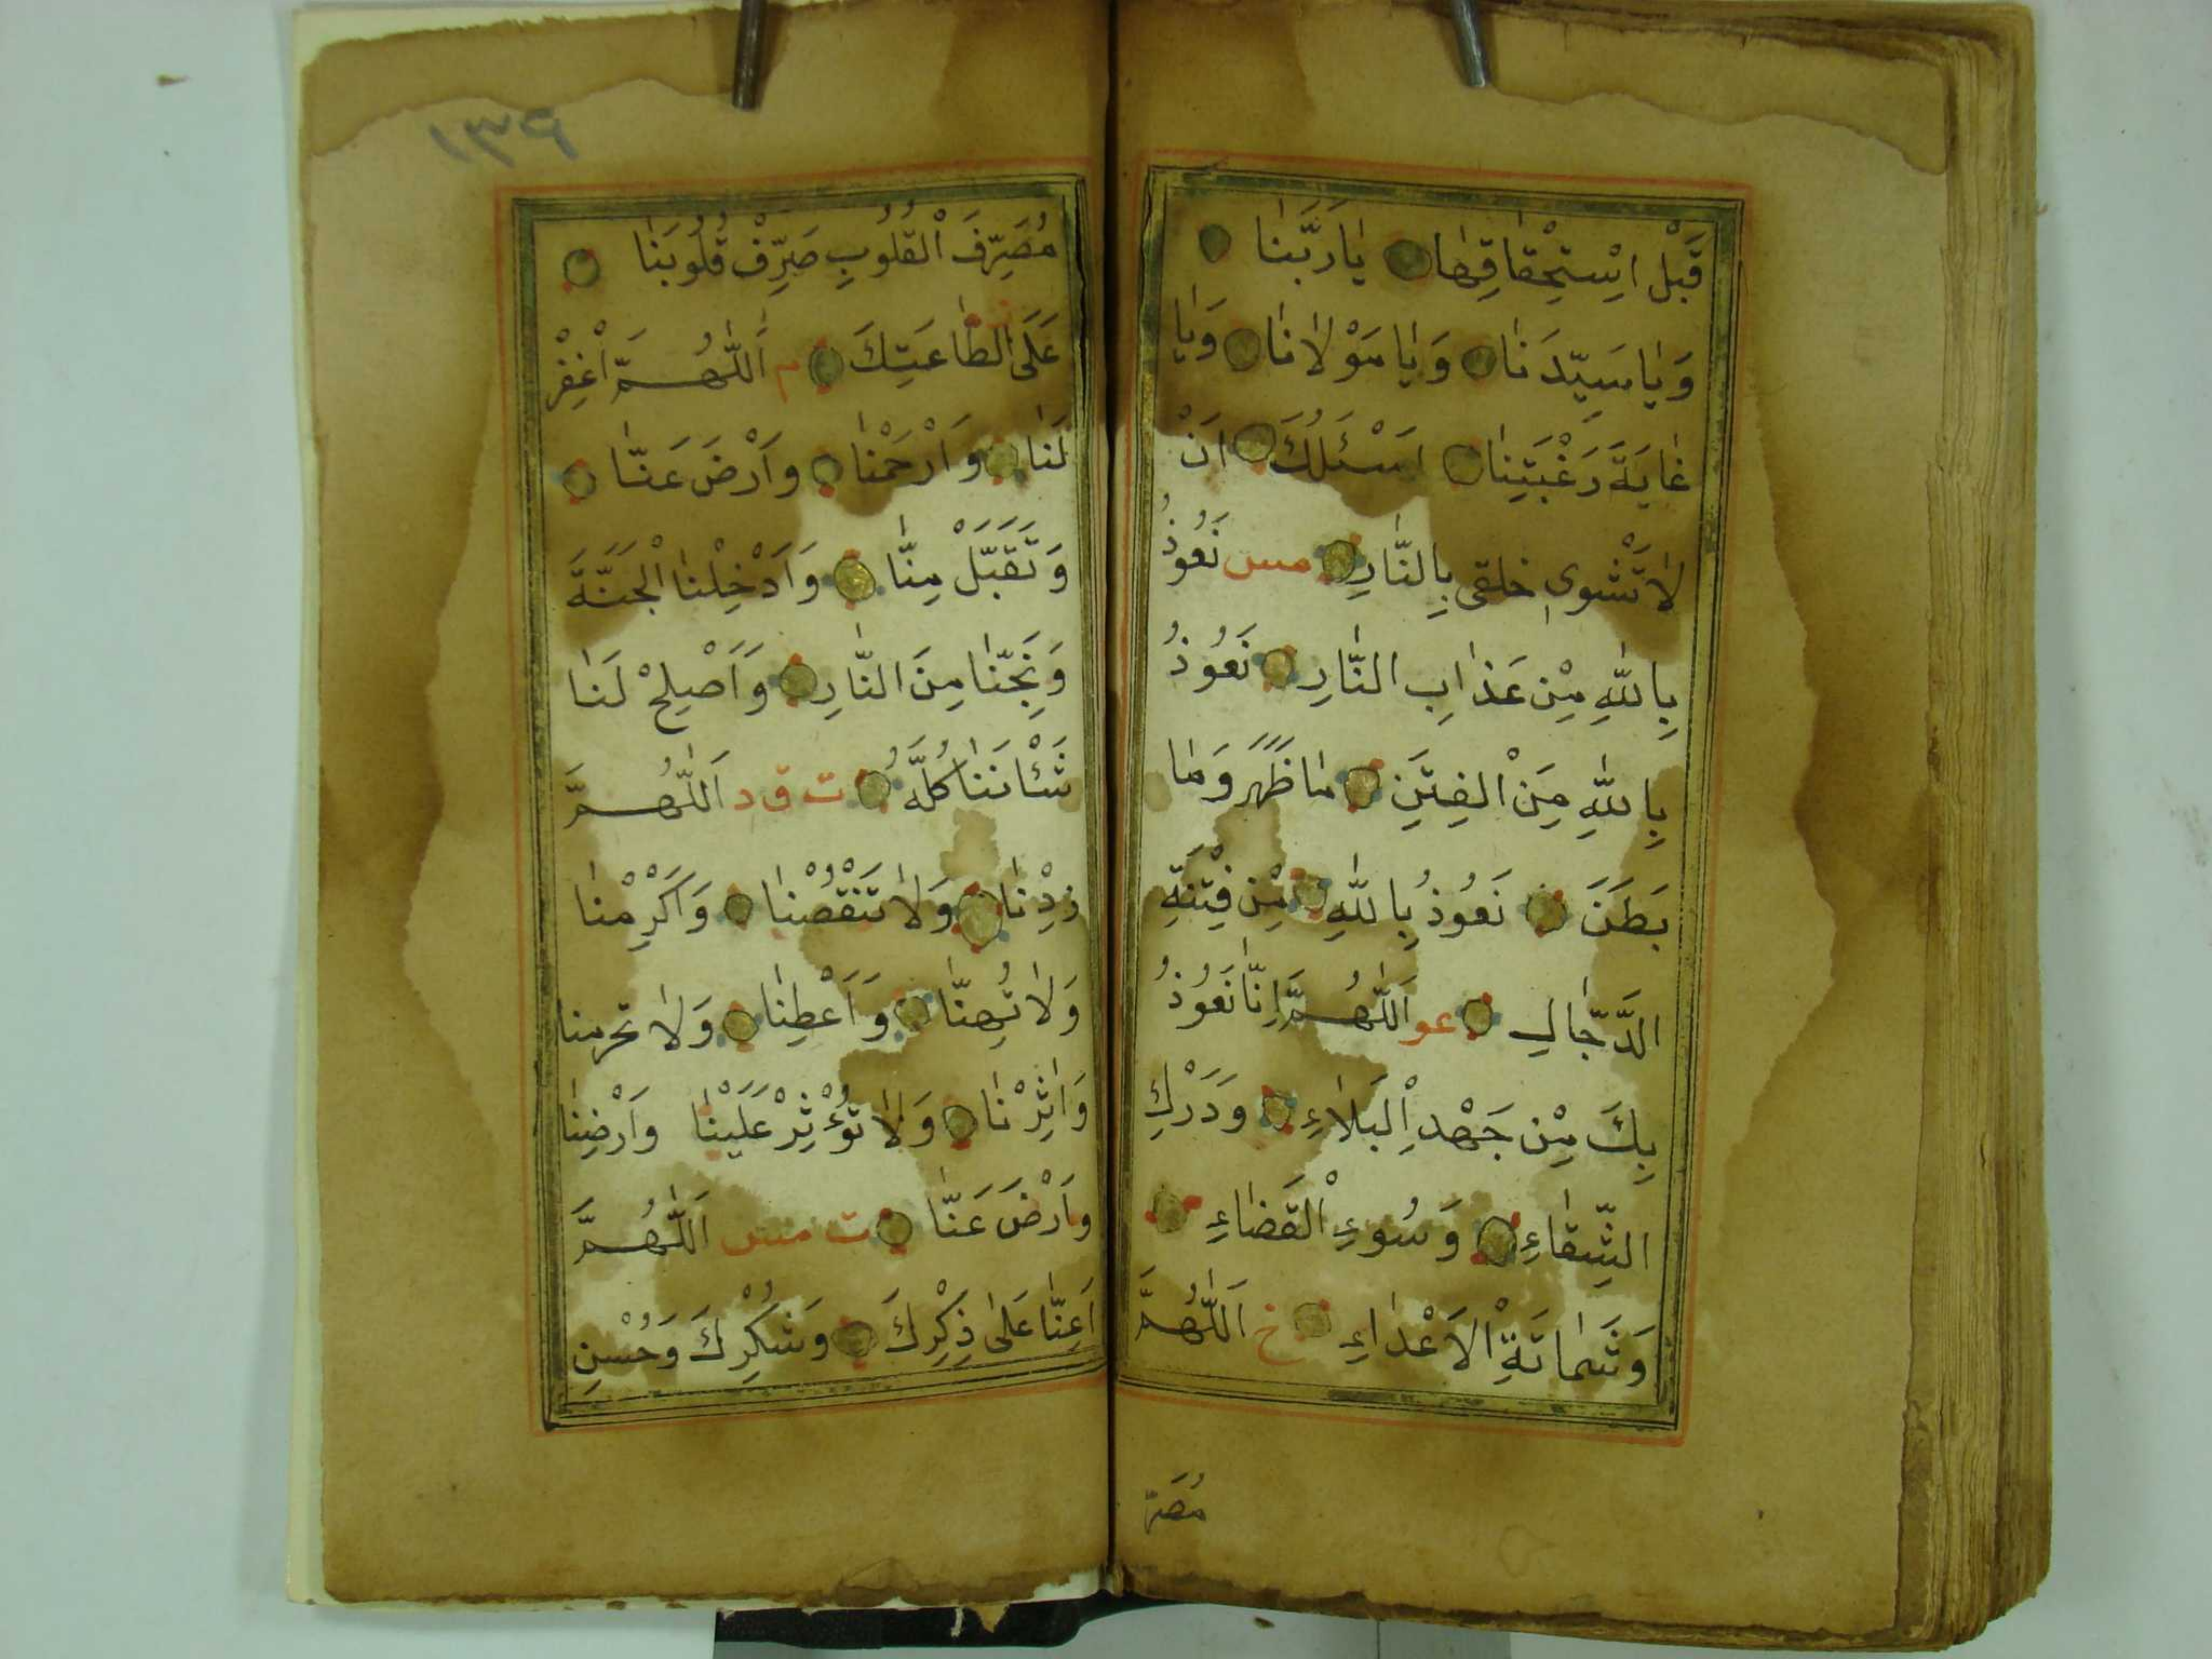 قَبْلَ اِسْتِحْقَاقِهَا يَا رَبَّنَا
وَيَا سَيِّدَنَا وَيَا مَوْلَانَا وَيَا
غَايَةَ رَغْبَتِنَا اَسْئَلُكَ اَنْ
لَا تَشْوِىَ خلقى بِالنَّارِ مس نَعُوذُ
بِاللّٰهِ مِنْ عَذَابِ النَّارِ نَعُوذُ
بِاللّٰهِ مِنَ الْفِتَنِ مَا ظَهَرَ وَمَا
بَطَنَ نَعُوذُ بِاللّٰهِ مِنْ فِتْنَةِ
الدَّجَّالِ عو اَللّٰهُمَّ اِنَّا نَعُوذُ
بِكَ مِنْ جَهْدِ الْبَلَاءِ وَدَرْكِ
الشِّقَاءِ وَسُوءِ الْقَضَاءِ
وَشَمَاتَةِ الْاَعْدَاءِ خ اَللّٰهُمَّ
مُصَرِّ
١٣٦
مُصَرِّفَ الْقُلُوبِ صَرِّفْ قُلُوبَنَا
عَلَى الطَّاعَتِكَ م اَللّٰهُمَّ اغْفِرْ
لَنَا وَارْحَمْنَا وَارْضَ عَنَّا
وَتَقَبَّلْ مِنَّا وَاَدْخِلْنَا الْجَنَّةَ
وَنَجِّنَا مِنَ النَّارِ وَاَصْلِحْ لَنَا
شَئْاَنَنَا كُلَّهُ ت ق د اَللّٰهُمَّ
زِدْنَا وَلَا تَنْقُصْنَا وَاَكْرِمْنَا
وَلَا تُهِنَّا وَاَعْطِنَا وَلَا تحرمنا
وَاٰثِرْنَا وَلَا تُؤْثِرْ عَلَيْنَا وَاَرْضِنَا
وَارْضَ عَنَّا ت مس اَللّٰهُمَّ
اَعِنَّا عَلٰى ذِكْرِكَ وَشُكْرِكَ وَحُسْنِ